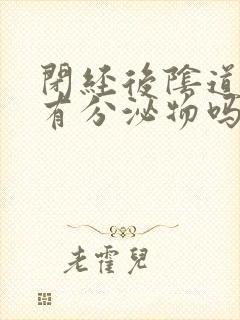 閉經後陰道
有分泌物吗
老霍兒